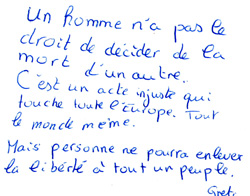 Un homme n'a pas le
droit de décider de la
mort d'un autre.
C'est un acte injuste qui
touche toute l'Europe. Tout
le monde même.
Mais personne ne pourra enlever
la libérté à tout un peuple.